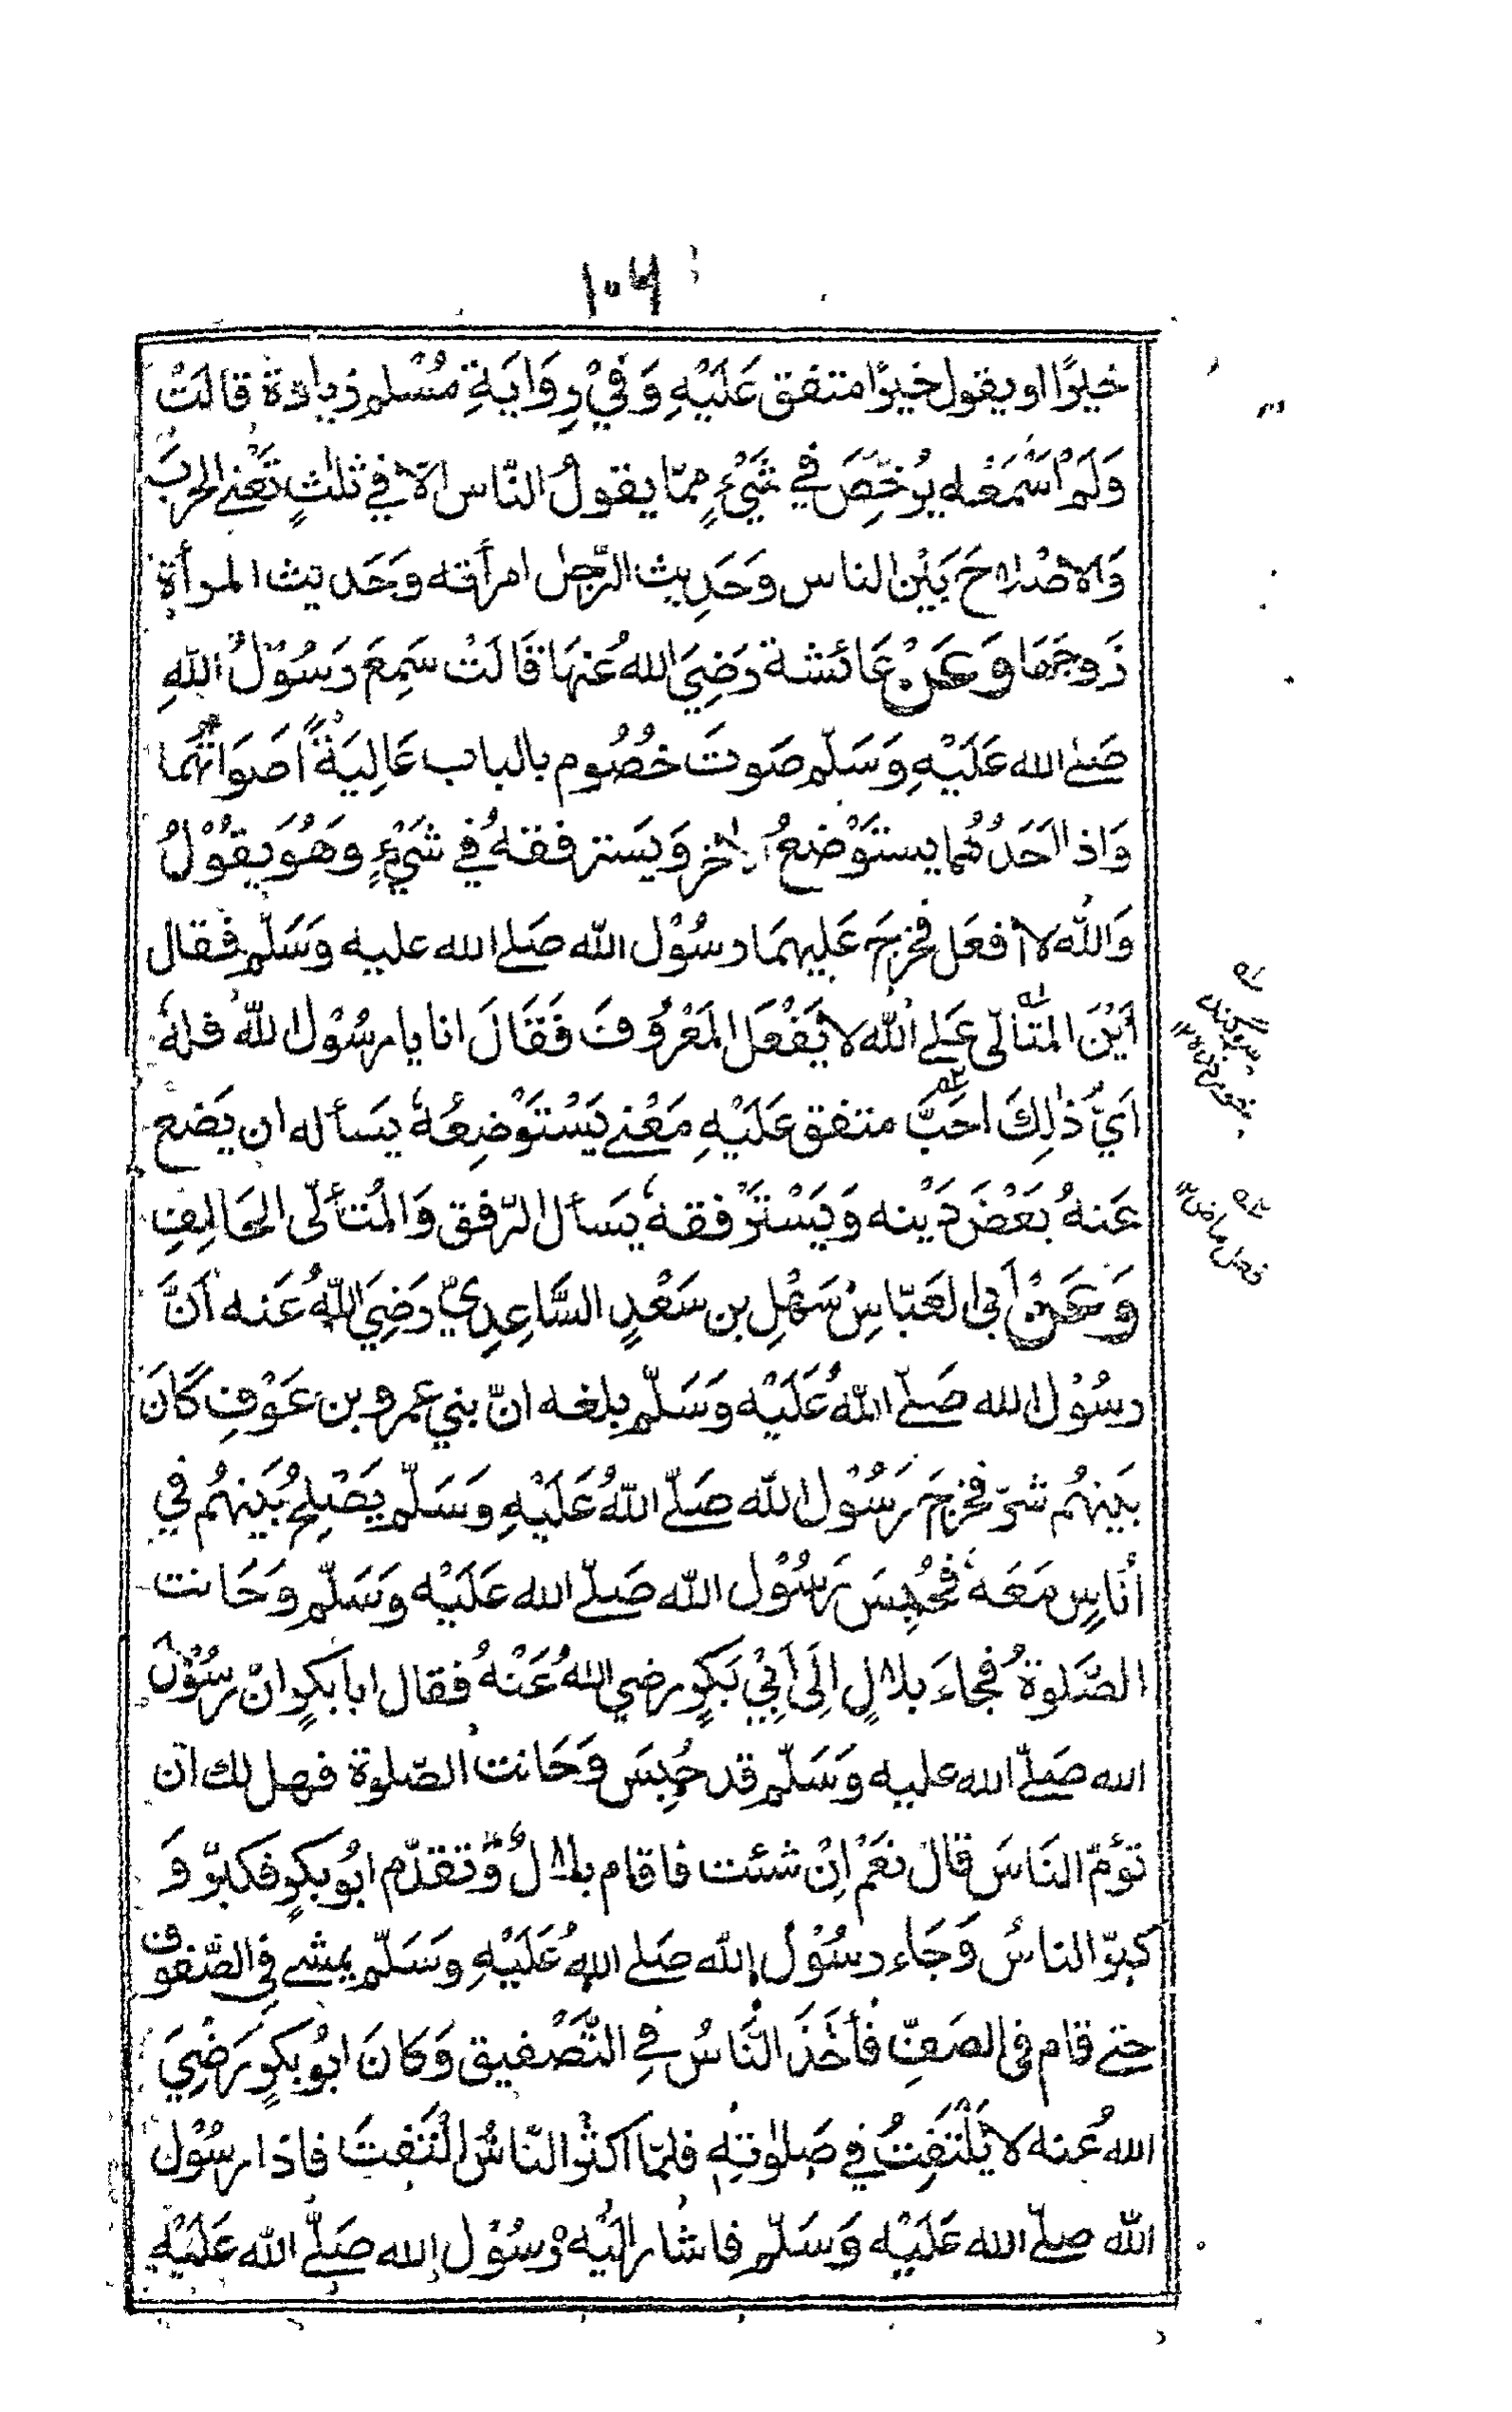 ۱۰۶
خيرًا او يقول خيرًا متفق عَلَيْهِ وَفِيْ رِوَايَةِ مُسْلم زيادة قالَتْ
وَلَمْ اَسْمَعْه يُرَخِّصَ فِي شَيْءٍ مِمّا يقولُ النّاس الّا في ثلٰثٍ تَعْنے الحربَ
وَالاصْلاحَ بَيْنَ الناس وَحَدِيث الرّجل امرأته وَحَديث المرأة
زَوجَهَا وَعَنْ عَائشة رَضِيَ اللهُ عَنهَا قَالَتْ سَمِعَ رَسُوْلُ اللهِ
صَلے الله عَلَيْهِ وَسَلّم صَوتَ خصُوم بالباب عَالِيَةً اَصَوَاتُهُما
وَاذا اَحَدُهُما يستَوْضعُ الاخر وَيَسترفقهُ فِي شَيْءٍ وهُوَ يقُوْلُ
وَاللهُ لا أفعَل فخرجَ عَليهمَا رسُوْل الله صَلے الله عليه وَسَلّم فقال
اَيْنَ المتَألّى عَلے اللهُ لا يَفْعَل المَعْرُوفَ فَقَالَ انا يا رسُوْل اللهُ فلهٗ
اَيُّ ذٰلِكَ احَبَّ متفق عَلَيْهِ مَعْنے يَسْتَوْضِعُهٗ يسَأله ان يَضع
عَنهُ بَعْضَ دَيْنه وَيَسْتَرْفقهٗ يسَأل الرّفق وَالمُتَألّى الحَالِفِ
وَعَنْ أبي العَبّاسِ سَهْلِ بن سَعْدٍ السَّاعِدِيّ رَضِيَ اللهُ عَنه اَنَّ
رسُوْل الله صَلّے اللهُ عَلَيْه وَسَلّم بلغه انّ بني عمرو بن عَوْفٍ كَانَ
بَينهُم شرّ فخرجَ رَسُوْل الله صَلّے اللهُ عَلَيْهِ وَسَلّم يَصْلِحُ بَينهُم فِي
اُنَاسٍ مَعَهٗ فحُبِسَ رَسُوْل الله صَلّے الله عَلَيْه وَسَلّم وَحَانت
الصَّلوةُ فجاءَ بلالٍ اِلَى اَبِيْ بَكرٍ رضي اللهُ عَنْهُ فقال ابا بكرٍ انّ رسُوْل
الله صَلّے الله عليه وَسَلّم قد حُبِسَ وَحَانت الصّلوة فهل لك ان
تؤمّ النَاسَ قال نعَمْ اِنْ شئت فاقام بلالُ وَّتقدّم ابُو بكرٍ فكبرّ وَ
كبرّ الناسُ وَجَاء رسُوْل الله صَلے اللهُ عَلَيْهِ وَسَلّم يمشے فِي الصُّفوف
حتے قام فى الصَفِّ فأخَذَ النَّاسُ فِي التَّصْفيق وَكانَ ابُو بكرٍ رَضْيَ
اللهُ عنه لا يَلْتَفِتُ فِي صَلوٰتهٖ فلمّا اكثر النّاسُ الْتَفتَ فاذا رسُوْل
الله صلّے الله عَلَيْه وَسَلّم فاشار اِلَيْه رسُوْل الله صَلّے الله عَلَيْه